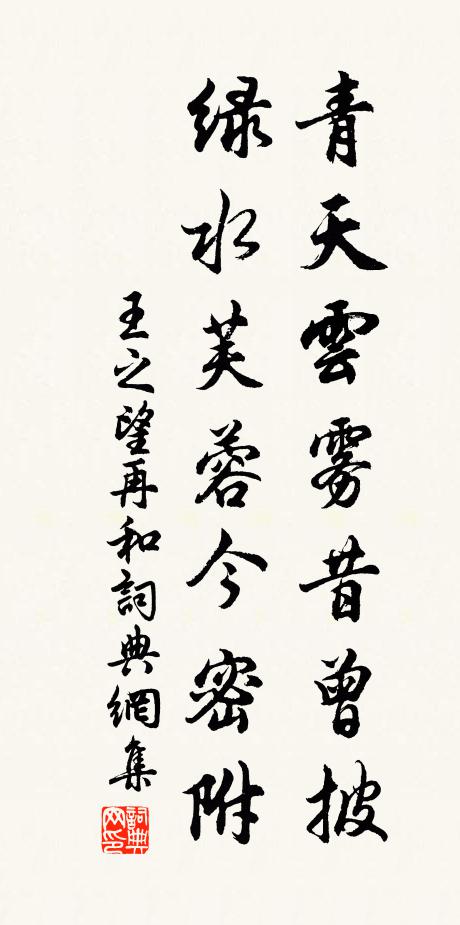 青天雲霧昔曾披
緑水芙蓉今密附
王之望再和詞典網集
詞典网印